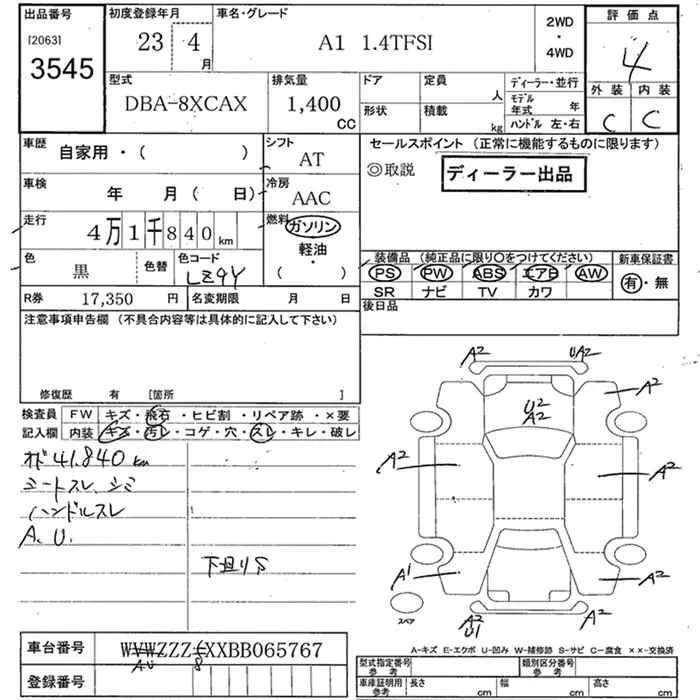 出品番号
[2063]
3545
初度登録年月
23 4 月
車名・グレード
A1 1.4TFSI
2WD
・
4WD
評価点
4
外装 内装
C C
型式
DBA-8XCAX
排気量
1,400
CC
ドア
定員
人
形状
積載
kg
ディーラー・並行
モデル年式 年
ハンドル 左・右
車歴
自家用・( )
シフト
AT
車検
年 月( 日)
冷房
AAC
走行
4万1千840km
燃料
ガソリン
軽油・
( )
色
黒
色替
色コード
LZ9Y
R券 17,350 円
名変期限 月 日
セールスポイント (正常に機能するものに限ります)
◎取説
ディーラー出品
装備品 (純正品に限り○をつけてください)
PS PW ABS エアB AW
SR ナビ TV カワ
新車保証書
有・無
後日品
注意事項申告欄 (不具合内容等は具体的に記入して下さい)
修復歴 有 [箇所 ]
検査員
記入欄
FW キズ・飛石・ヒビ割・リペア跡・×要
内装 キズ・汚レ・コゲ・穴・スレ・キレ・破レ
オド41,840km
シートスレ、シミ
ハンドルスレ
A、U、
下廻りS
A2
UA2
A2
U2
A2
A2
A2
A1
A2
A2
U1
A2
スペア
A-キズ E-エクボ U-凹み W-補修跡 S-サビ C-腐食 ××-交換済
車台番号
WVWZZZ XXBB065767
AU 8
登録番号
型式指定番号
参考
類別区分番号
参考
車庫証明用
参考
長さ cm
幅 cm
高さ cm